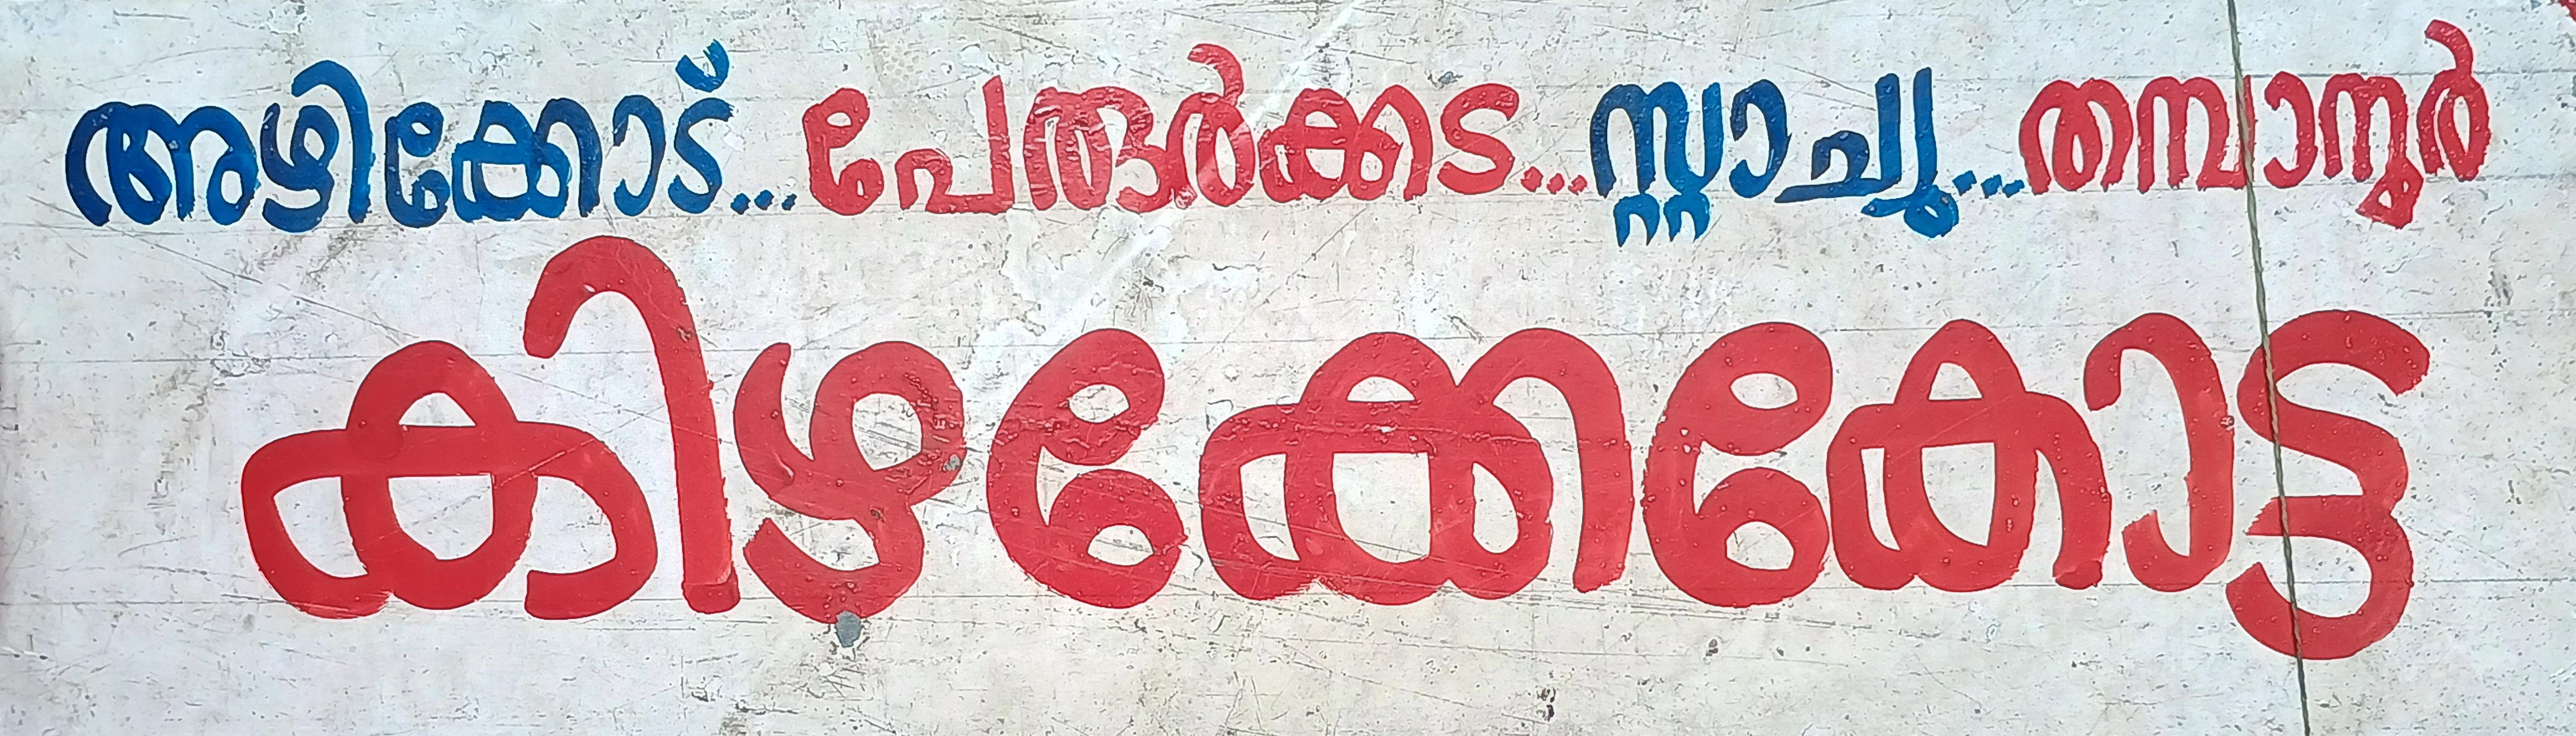 അഴിക്കോട്... പേരൂർക്കട... സ്റ്റാച്ച്യൂ... തമ്പാനൂർ
കിഴക്കേകോട്ട